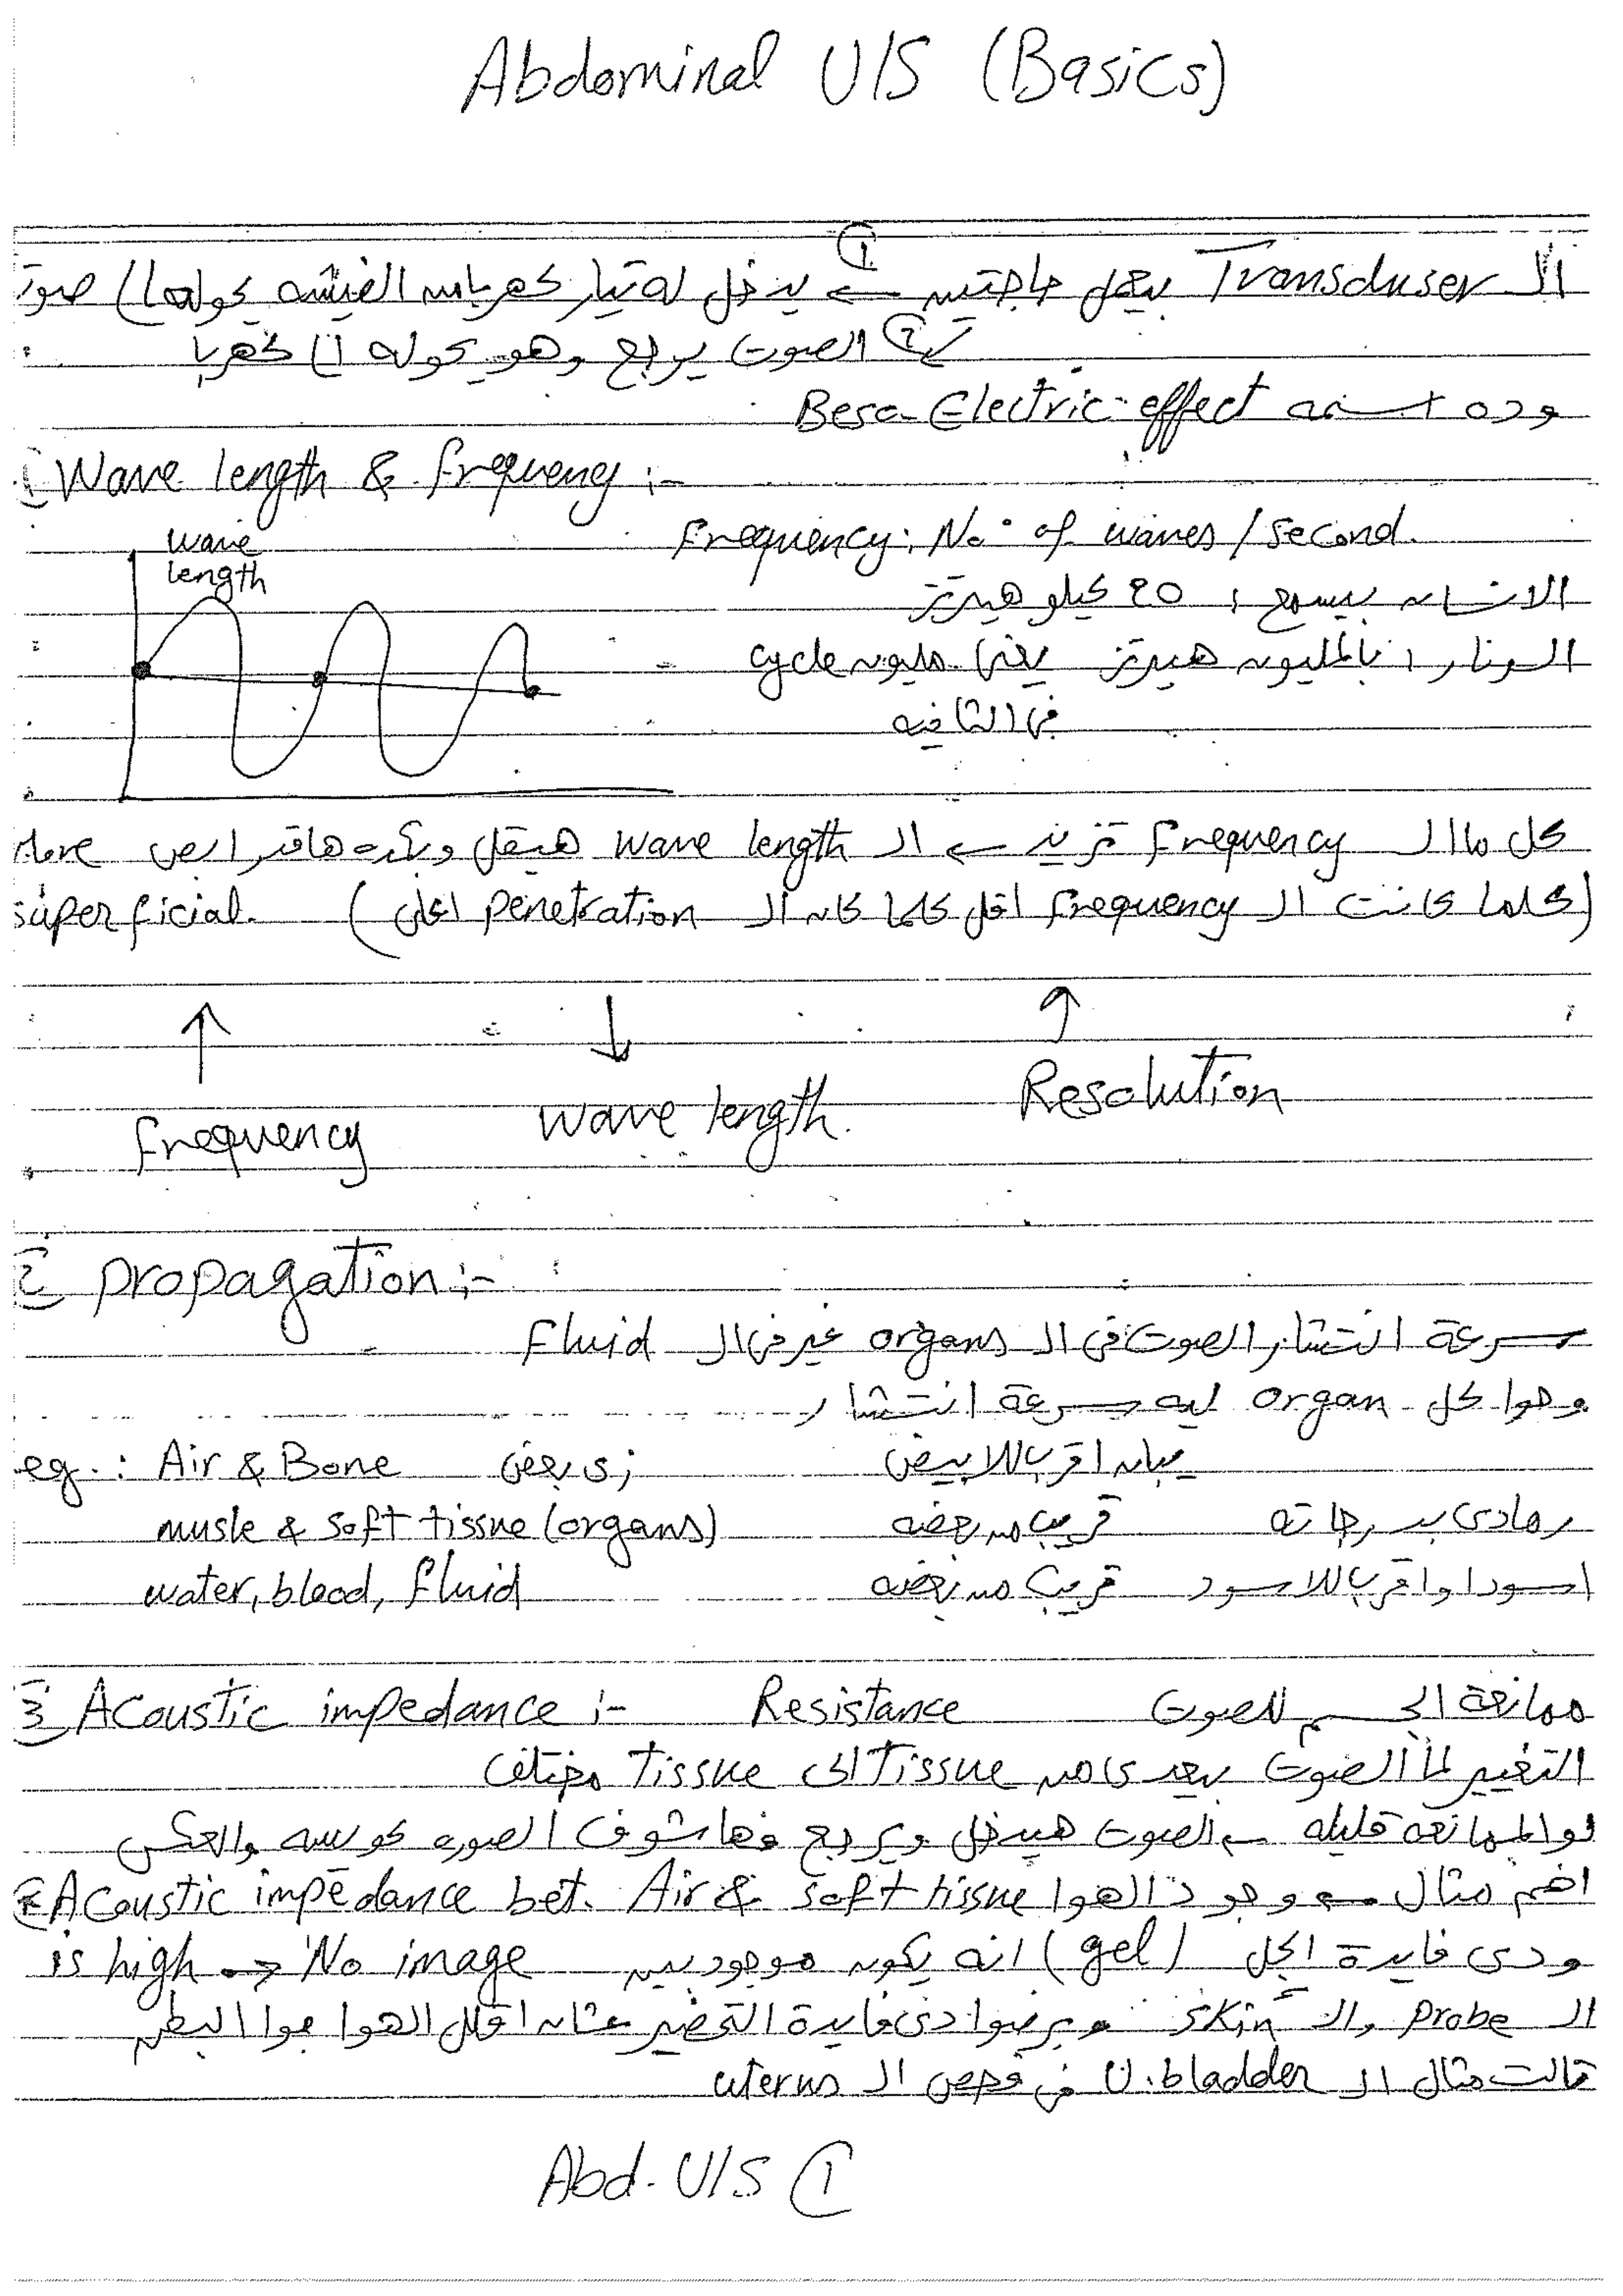 Abdominal U/S (Basics)
ال Transduser بيعمل حاجتين ← ① يدخل له تيار كهربا من الفيشه يحولها ل صوت
② الصوت يرجع وهو يحوله ل كهربا
وده اسمه Beso-Electric effect
1 Wave length & frequency :-
wave
length
Frequency: No. of waves / second.
الانسان بيسمع : 20 كيلو هيرتز
السونار : بالمليون هيرتز يعنى مليون cycle
فى الثانيه
كل ما ال frequency تزيد ← ال wave length هيقل وبكده هاقدر ابص More
superficial. (كلما كانت ال frequency اقل كلما كان ال penetration اعلى)
↑ ↓ ↑
frequency wave length. Resolution
2 propagation :-
سرعة انتشار الصوت فى ال organs غير فى ال Fluid
وهوا كل organ ليه سرعة انتشار
eg. : Air & Bone زى بعض يبان اقرب للابيض
musle & soft tissue (organs) قريب من بعضه رمادى بدرجاته
water, blood, fluid قريب من بعضه اسود او اقرب للاسود
3 Acoustic impedance :- Resistance ممانعة الجسم للصوت
التغيير لما الصوت بيعدى من tissue الى tissue مختلف
لو الممانعه قليله ← الصوت هيدخل ويرجع فهاشوف الصوره كويسه والعكس
اهم مثال ← وجود الهوا Acoustic impedance bet. Air & soft tissue
is high → No image ودى فايدة الجل (gel) انه يكون موجود بين
ال probe وال skin وبرضوا دى فايدة التحضير عشان اقلل الهوا جوا البطن
تالت مثال ال U.bladder فى فحص ال uterus
Abd. U/S ①